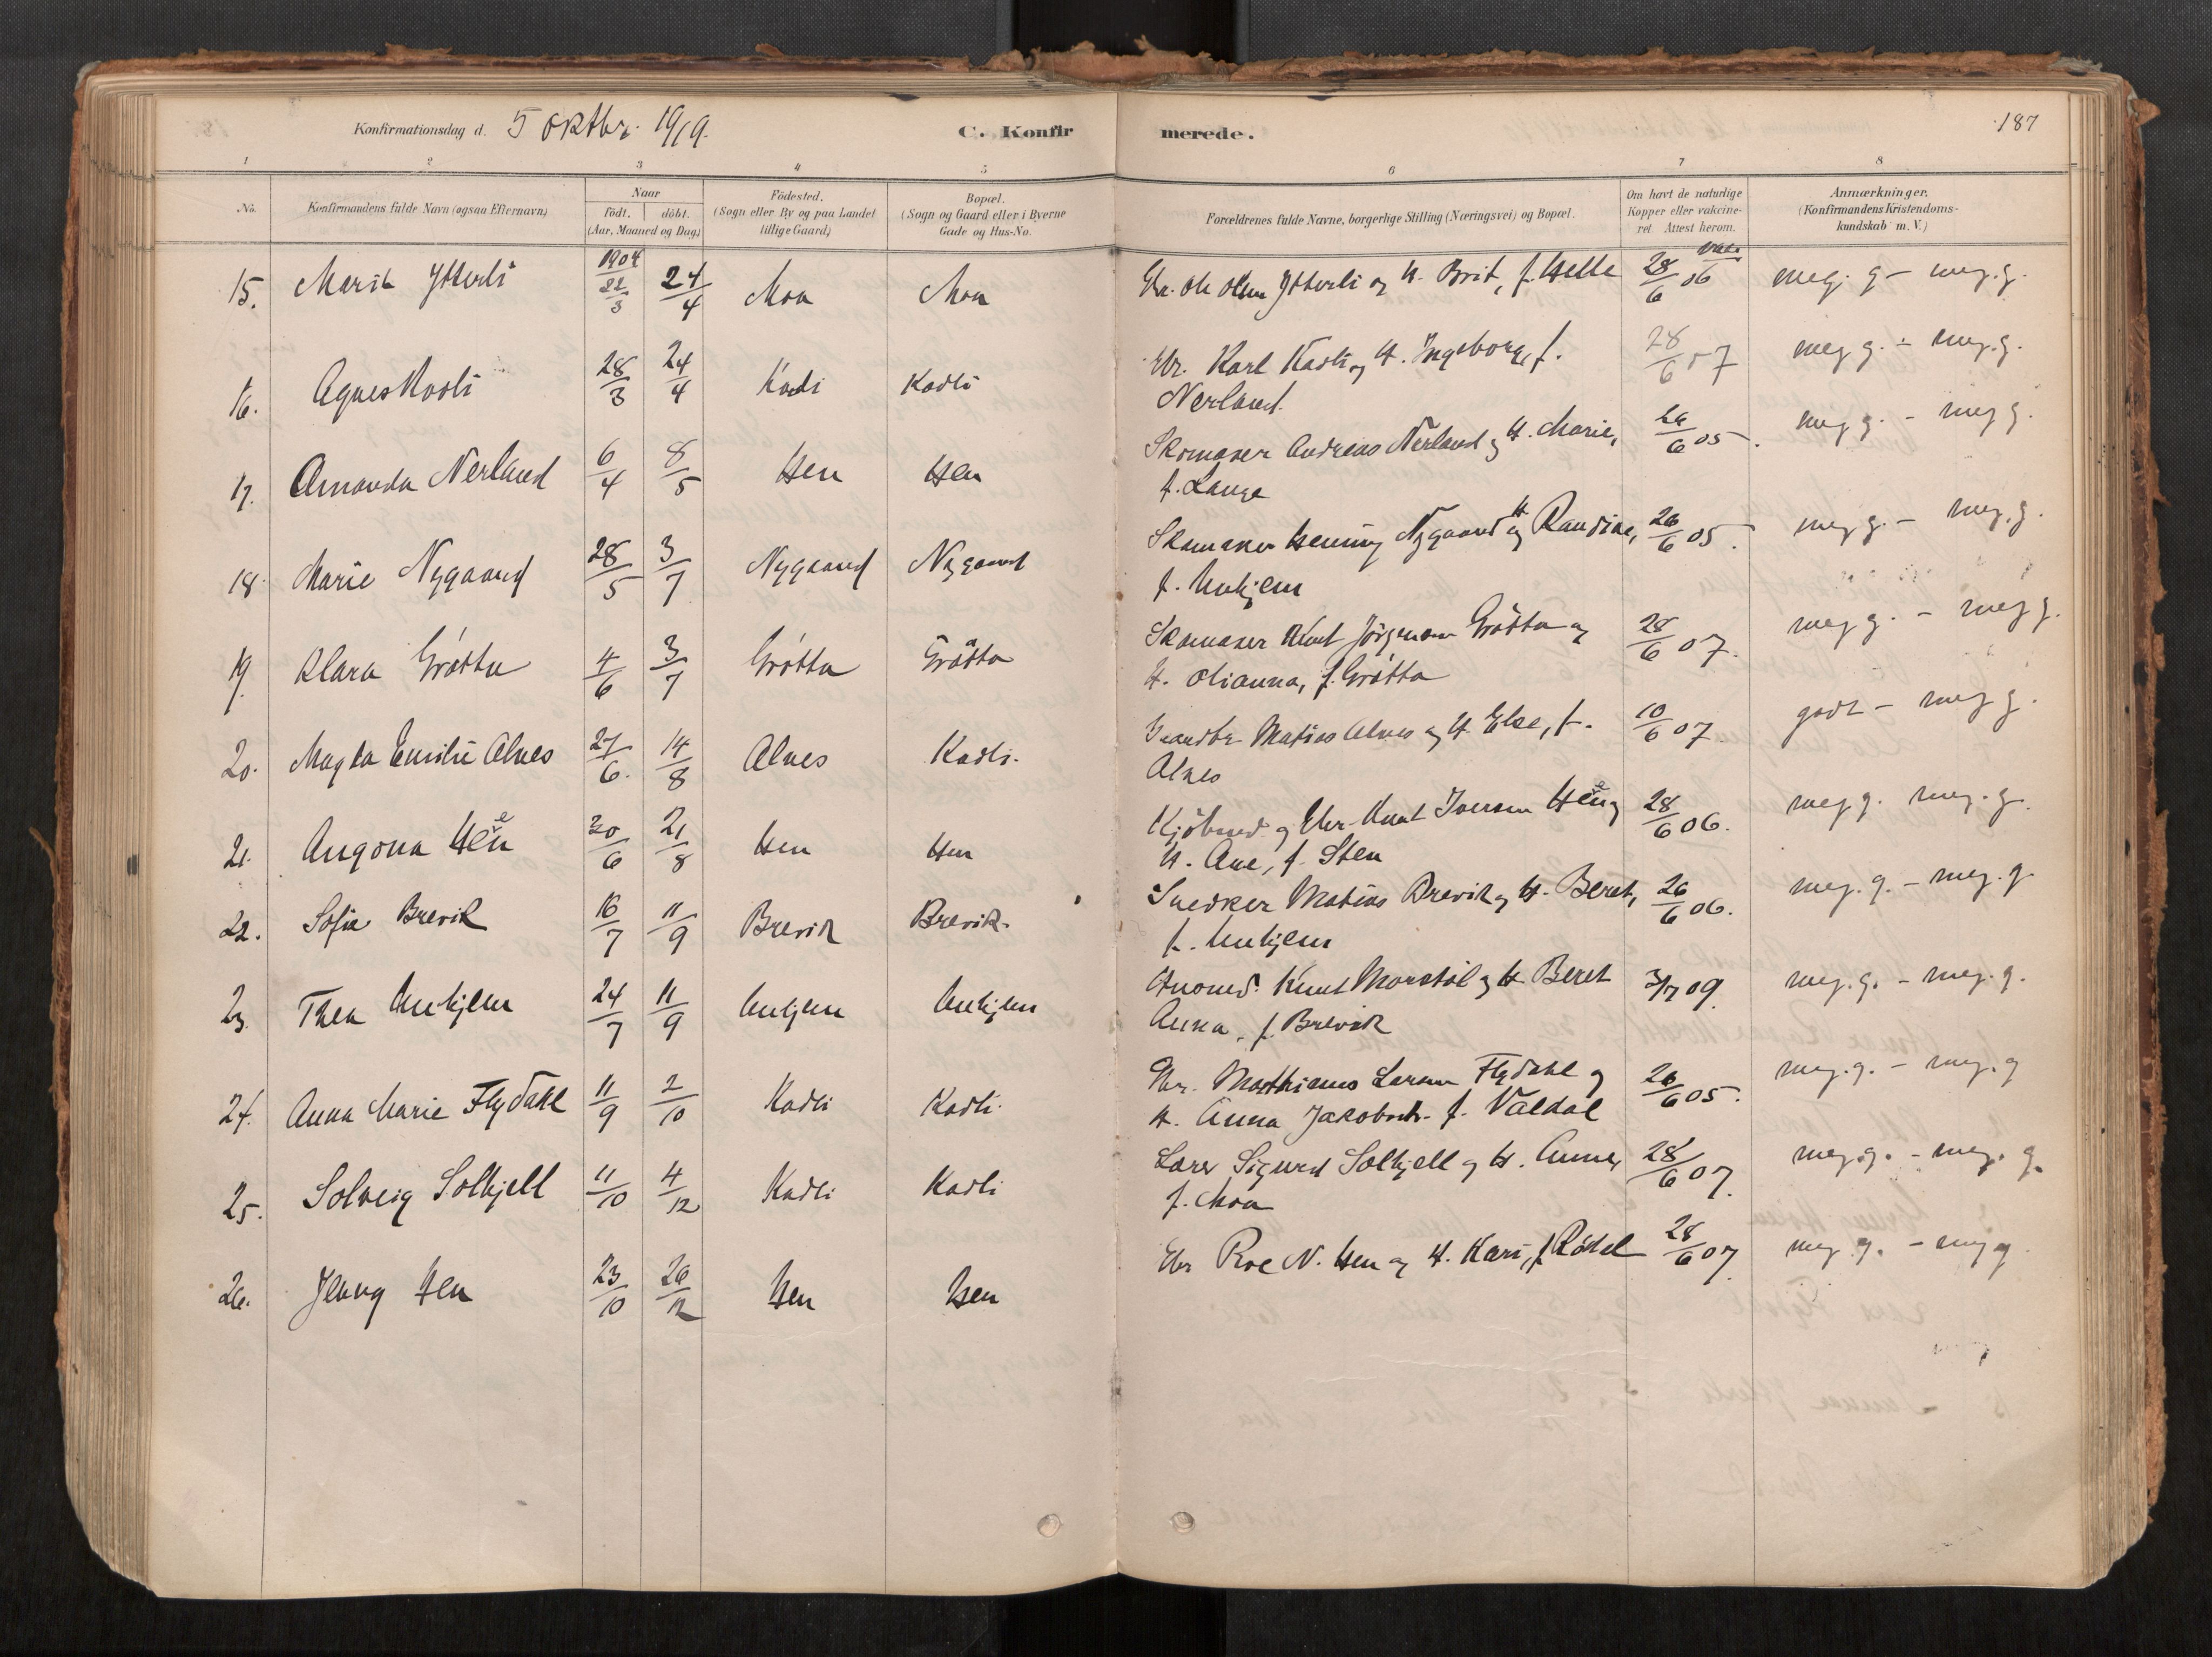 Konfirmationsdag d. 5 oktbr. 1919.
C. Konfir
merede.
187
1 2 3 4 5 6 7 8
No. Konfirmandens fulde Navn (ogsaa Efternavn) Naar födt. döbt. (Aar, Maaned og Dag) Födested. (Sogn eller By og paa Landet tillige Gaard) Bopæl. (Sogn og Gaard eller i Byerne Gade og Hus-No. Forældrenes fulde Navne, borgerlige Stilling (Næringsvei) og Bopæl. Om havt de naturlige Kopper eller vakcineret Attest herom. Anmærkninger. (Konfirmandens Kristendomskundskab m. V.)
15. Marit Ytterli 1904 22/3 24/4 Moa Moa Gbr. Ole Olsen Ytterli og H. Brit, f. Helle vac. 28/6 06 meg. g - meg. g.
16. Agnes Kavli 28/3 24/4 Kavli Kavli Gbr. Karl Kavli og H. Ingeborg, f. 28/6 07 meg g. - meg. g.
Nerland.
17. Amanda Nerland 6/4 8/5 Hen Hen Skomaker Andreas Nerland og H. Marie, 26/6 05. meg g. - meg g.
f. Lange
18. Marie Nygaard 28/5 3/7 Nygaard Nygaard Skomaker Henning Nygaard og H Randine, 26/6 05. meg g. - meg. g.
f. Unhjem
19. Klara Gråtta 4/6 3/7 Gråtta Gråtta Skomaker Knut Jörgensen Gråtta og 28/6 07. meg g. - meg g.
H. Olianna, f. Gråtta
20. Magda Emilie Alnes 27/6. 14/8 Alnes Kavli. Matias Alnes og H Else, f. 10/6 07. godt - meg g.
Alnes
21. Angona Hen 30/6 21/8 Hen Hen Kjöbmd og Gbr. Knut Iversen Hen og 28/6 06. meg g. meg. g.
H. Ane, f. Sten
22. Sofie Brevik 16/7 11/9 Brevik Brevik. Snedker Matias Brevik og H. Beret, 26/6 06. meg. g. - meg. g.
f. Unhjem
23. Thea Unhjem 24/7 11/9 Unhjem Unhjem Knut Morstöl og H Beret 3/7 09. meg. g. - meg. g.
Anna, f. Brevik
24. Anna Marie Flydahl 11/9 2/10 Kavli Kavli. Gbr. Larsen Flydahl og 26/6 05. meg. g. - meg. g
H. Anna Jakobsdt. f. Valdal
25. Solveig Solhjell 11/10 4/12 Kavli Kavli Lærer Sigurd Solhjell og H. Anna, 28/6 07. meg. g. - meg. g.
f. Moa
26. Jenny Hen 23/10 26/12 Hen Hen Gbr Roe N. Hen og H. Kari, f. Rödal 28/6 07. meg g. - meg g.